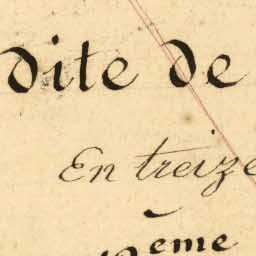 dite de
En treize
eme